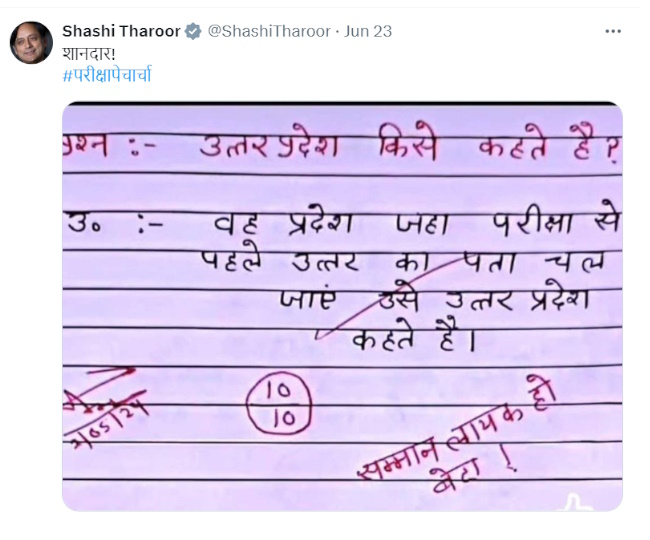 Shashi Tharoor @ShashiTharoor · Jun 23
शानदार!
#परीक्षापेचार्चा
प्रश्न :- उत्तर प्रदेश किसे कहते है?
उ० :- वह प्रदेश जहा परीक्षा से
पहले उत्तर का पता चल
जाएं उसे उत्तर प्रदेश
कहते है।
10
10
/05/24
सम्मान लायक हो
बेटा !